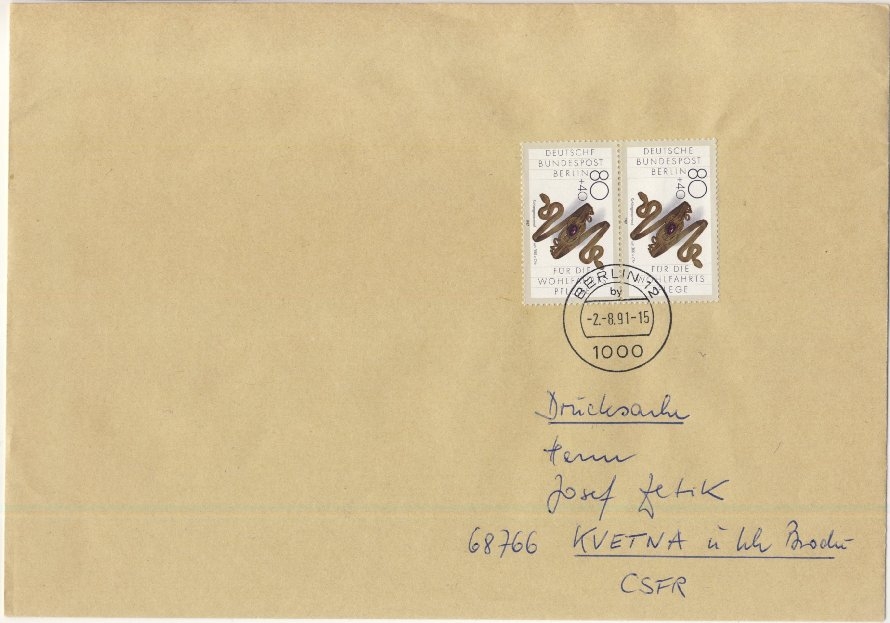 DEUTSCHE
BUNDESPOST
BERLIN
80
+40
FÜR DIE
WOHLFAHRTS
PFLEGE
DEUTSCHE
BUNDESPOST
BERLIN
80
+40
FÜR DIE
WOHLFAHRTS
PFLEGE
BERLIN 12
by
-2.-8.91-15
1000
Drucksache
Herrn
Josef
68766 KVETNA u
CSFR